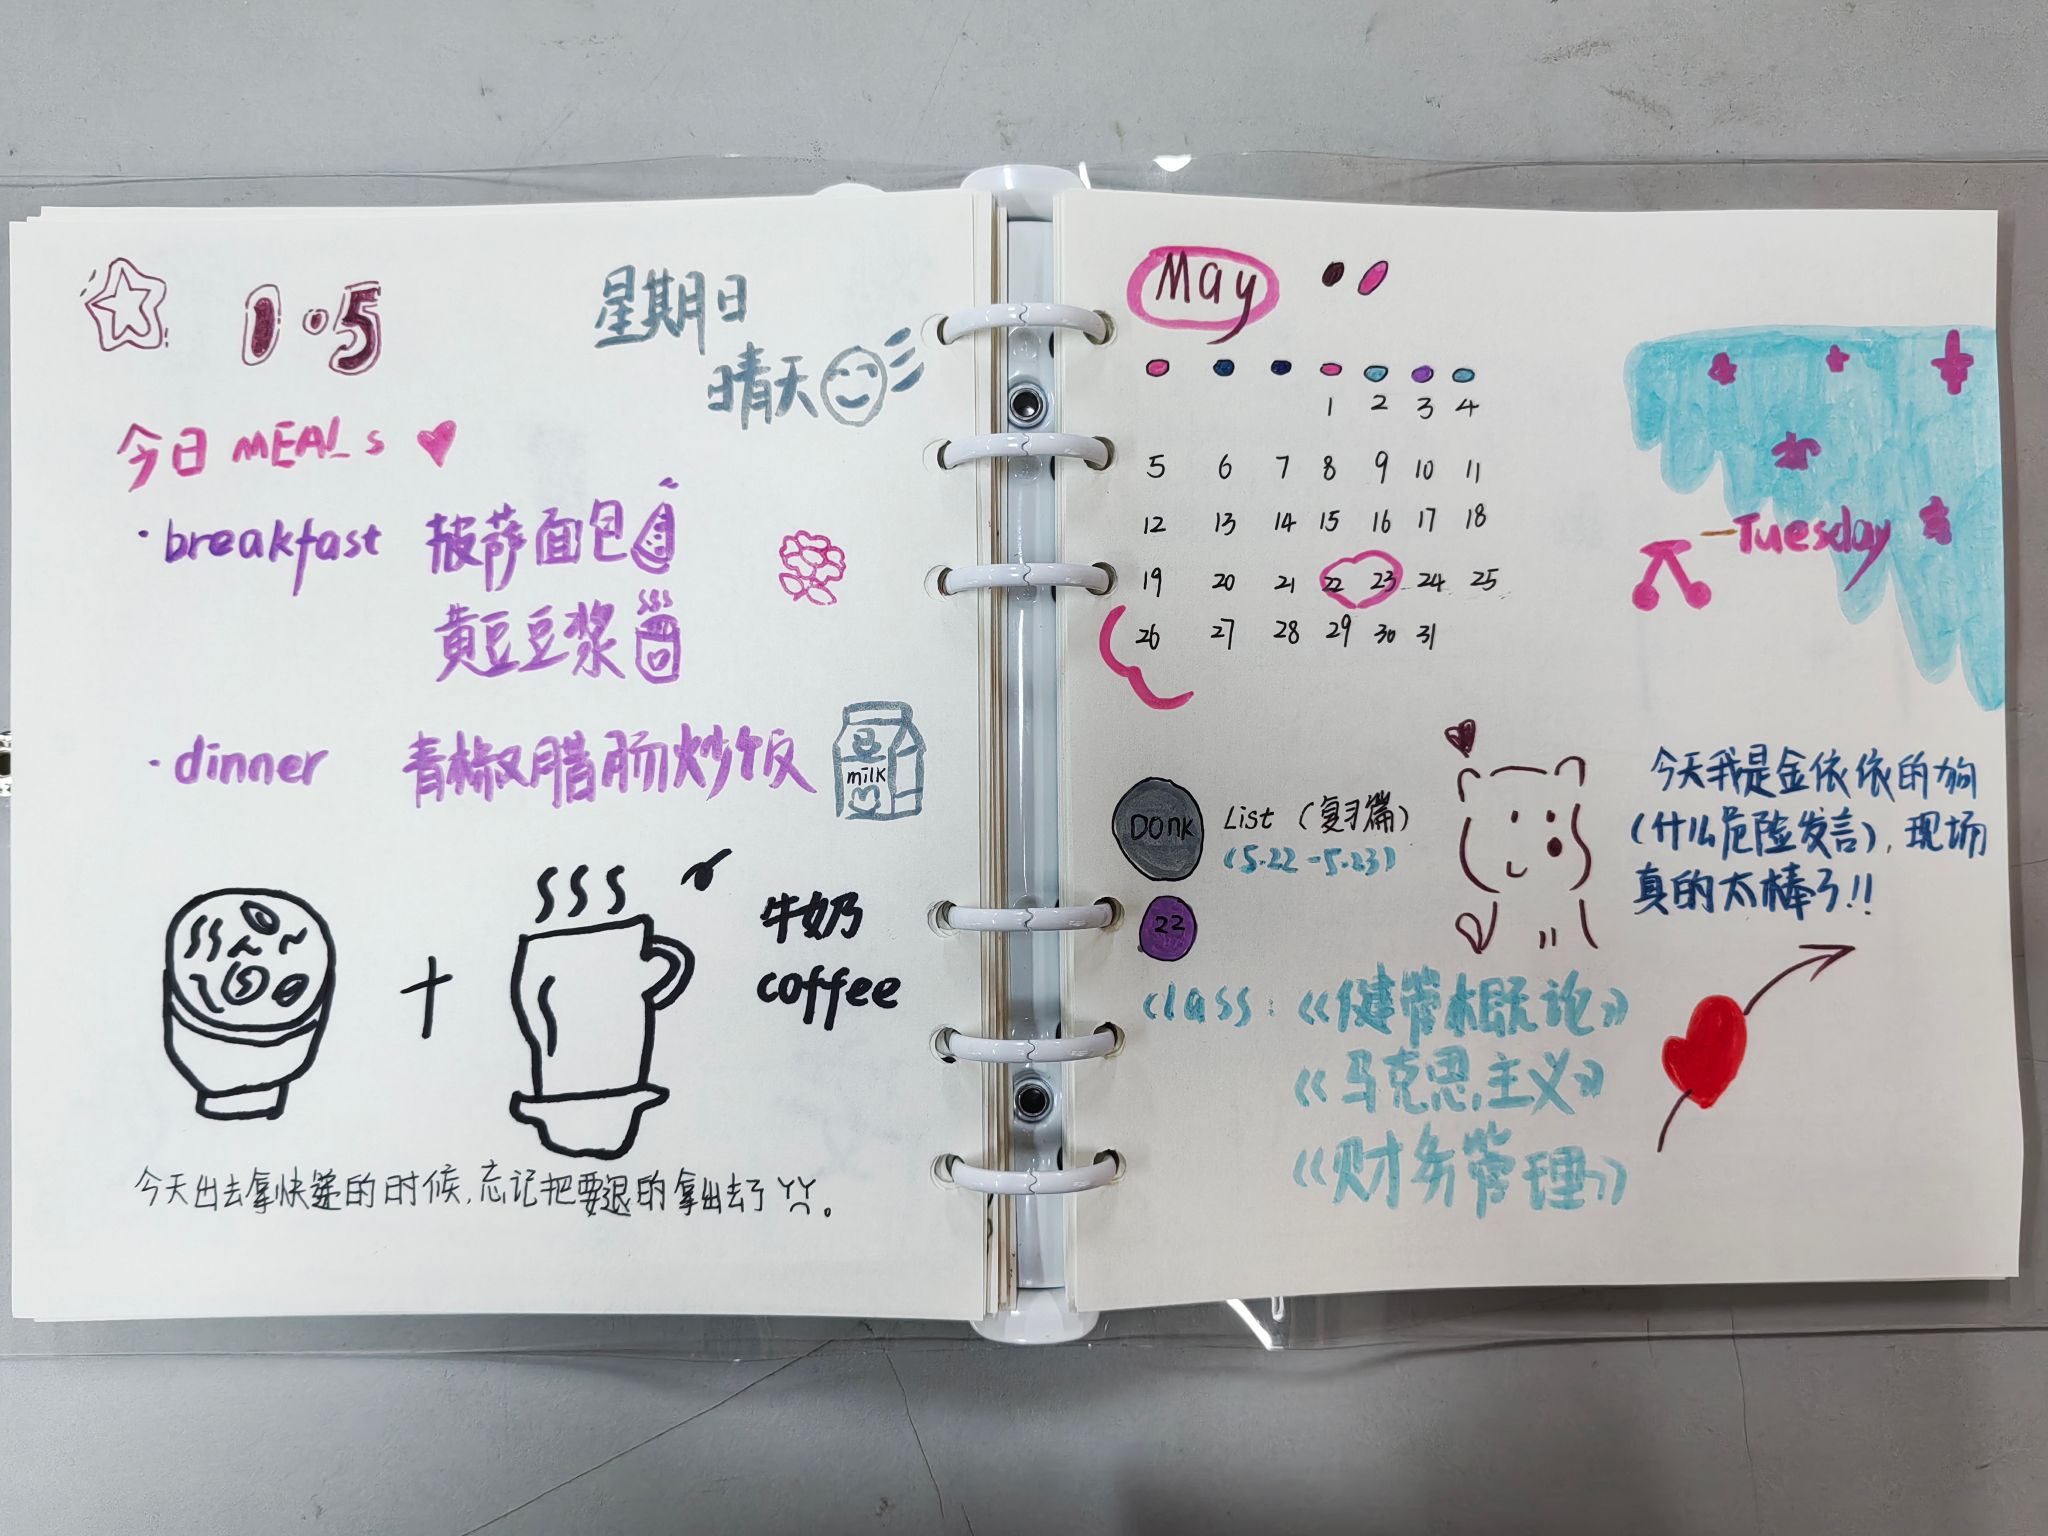 1·5
星期日
晴天
今日 MEALs
·breakfast 披萨面包
黄豆豆浆
·dinner 青椒腊肠炒饭
milk
牛奶
coffee
今天出去拿快递的时候,忘记把要退的拿出去了。
May
1 2 3 4
5 6 7 8 9 10 11
12 13 14 15 16 17 18
19 20 21 22 23 24 25
26 27 28 29 30 31
-Tuesday
DONK List (复习篇)
(5.22-5.23)
今天我是金依依的狗
(什么危险发言),现场
真的太棒了!!
22
class:《健管概论》
《马克思主义》
《财务管理》